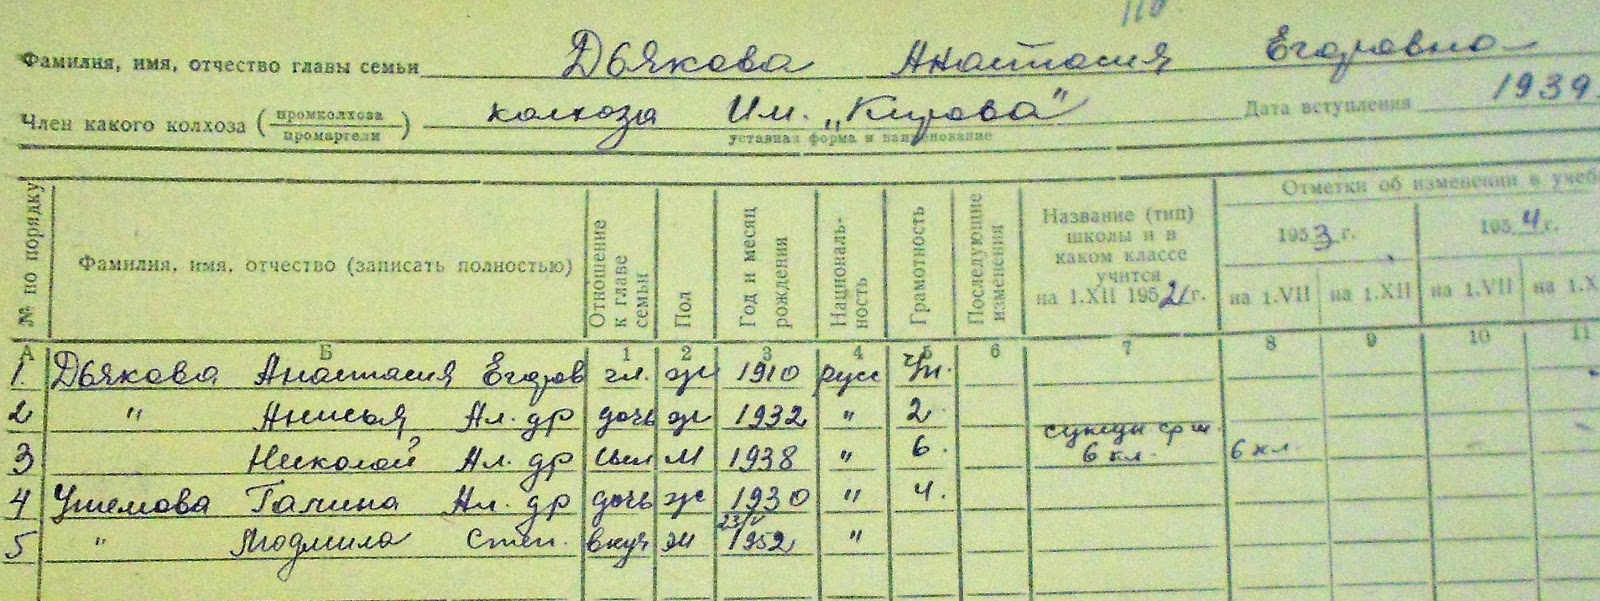 110.
Фамилия, имя, отчество главы семьи Дьякова Анастасия Егоровна
Член какого колхоза (промколхоза / промартели) колхоза Им. „Кирова" Дата вступления 1939.
уставная форма и наименование
№ по порядку
Фамилия, имя, отчество (записать полностью)
Отношение к главе семьи
Пол
Год и месяц рождения
Националь-
ность
Грамотность
Последующие изменения
Название (тип) школы и в каком классе учится на 1.XII 1952 г.
Отметки об изменении в учеб
1953 г. 1954 г.
на 1.VII на 1.XII на 1.VII на 1.X
А Б 1 2 3 4 5 6 7 8 9 10 11
1. Дьякова Анастасия Егоров гл. ж 1910 русс
2 " Анисья Ал. др дочь ж 1932 " 2.
3 Николай Ал. др сын м 1938 " 6. ср ш. 6 кл. 6 кл.
4 Галина Ал. др дочь ж 1930 " 4.
5 " Людмила Степ. внуч ж 23/V 1952 "